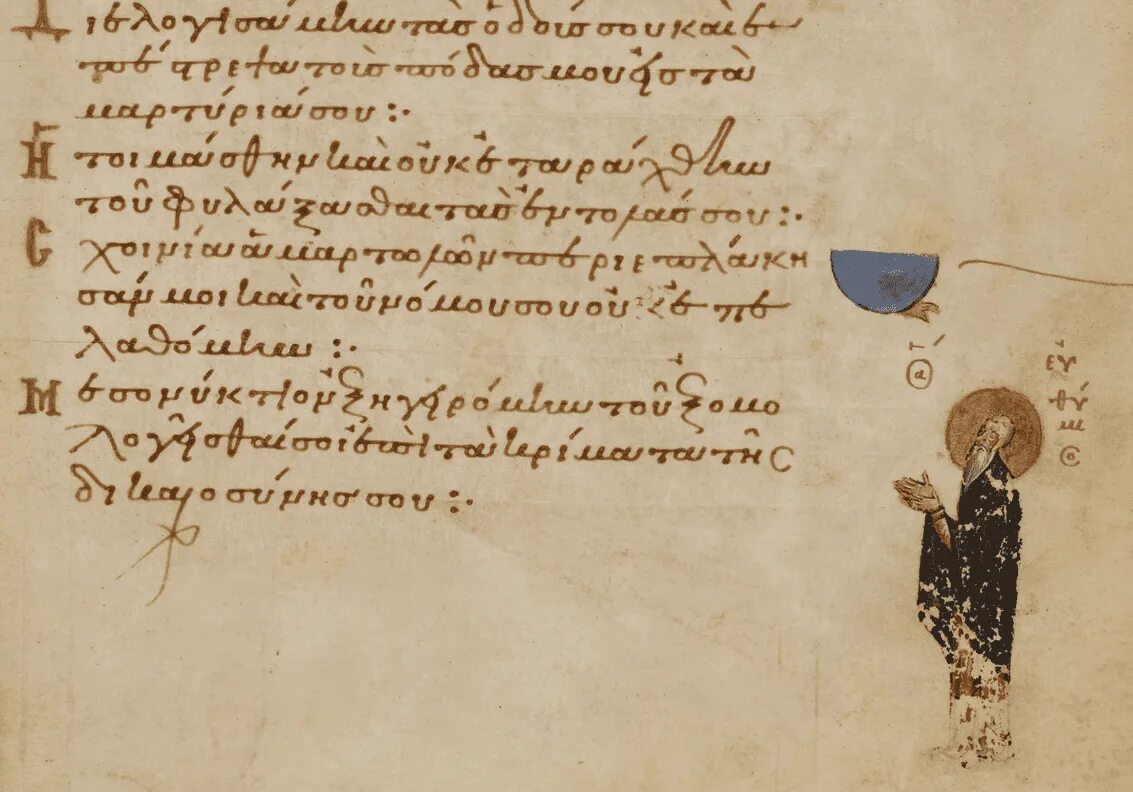 Διελογισάμην τὰς ὁδούς σου καὶ ἐ
πέστρεψα τοὺς πόδας μου εἰς τὰ
μαρτύριά σου :·
Ἡτοιμάσθην καὶ οὐκ ἐταράχθην
τοῦ φυλάξασθαι τὰς ἐντολάς σου :·
Σχοινία ἁμαρτωλῶν περιεπλάκη
σάν μοι καὶ τοῦ νόμου σου οὐκ ἐπε
λαθόμην :·
Μεσονύκτιον ἐξηγειρόμην τοῦ ἐξομο
λογεῖσθαί σοι ἐπὶ τὰ κρίματα τῆς
δικαιοσύνης σου :·
εὐ
θύ
μι
ος